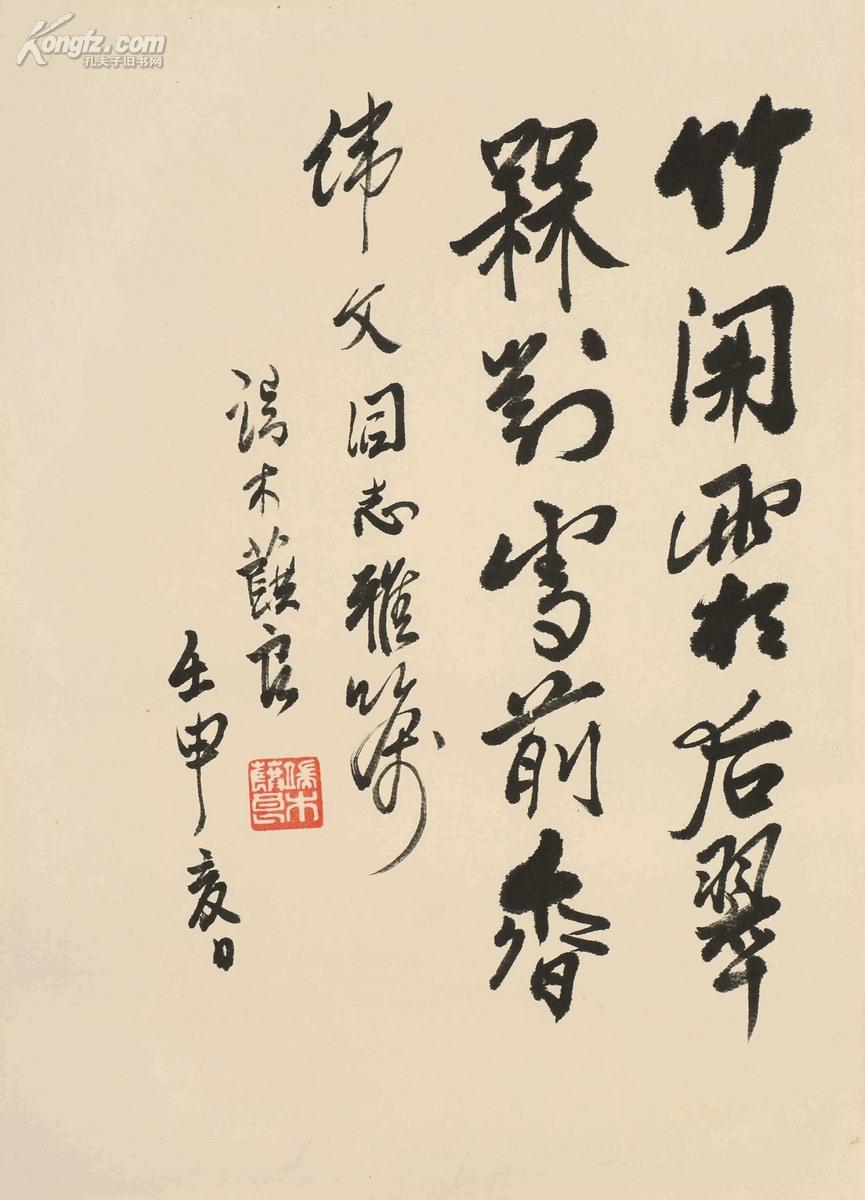 Kongfz.com
孔夫子旧书网
竹開霜后翠
槑對雪前香
纬文同志雅嘱
端木蕻良
壬申夏日
端木蕻良